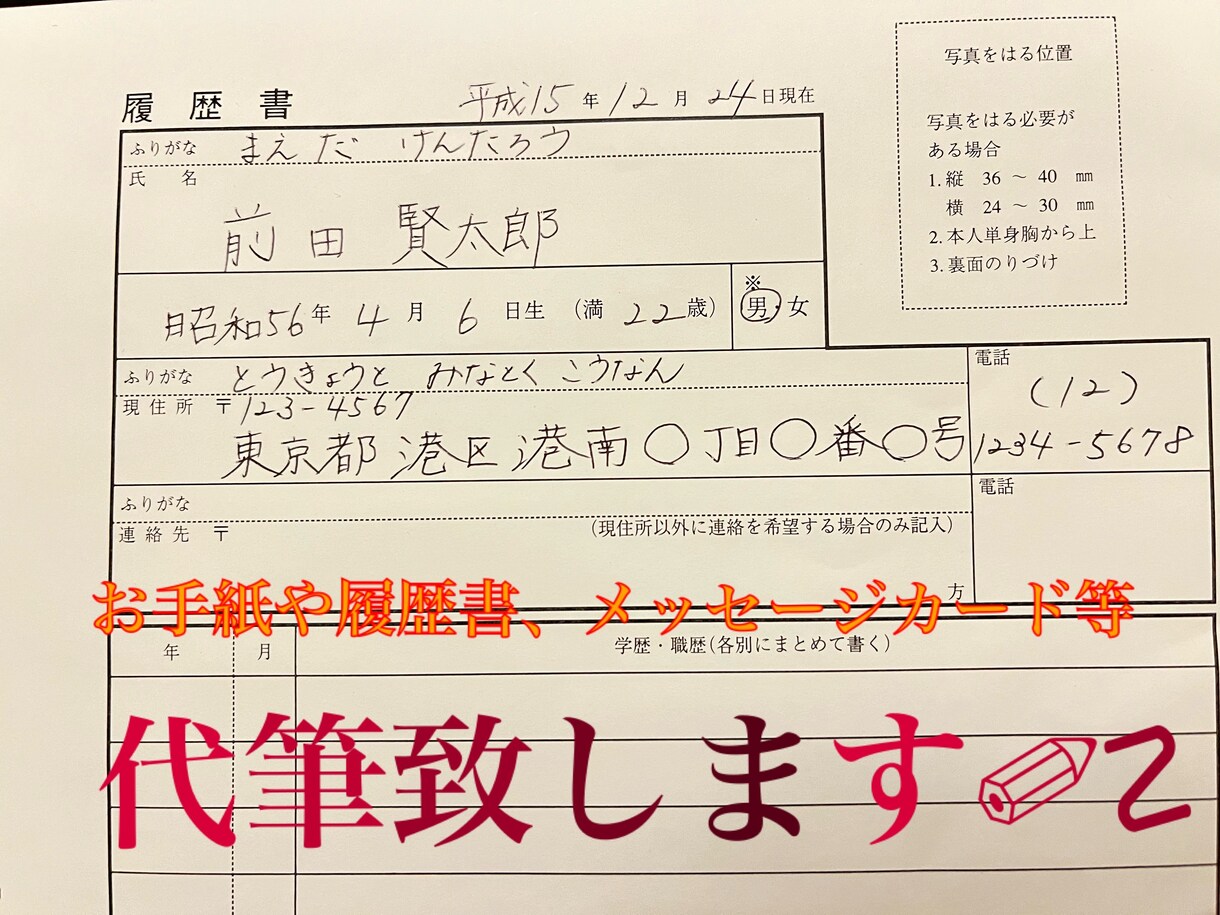 履歴書 平成15年12月24日現在
ふりがな まえだ けんたろう
氏名
前田 賢太郎
昭和56年 4月 6日生 (満 22歳) ※男・女
ふりがな とうきょうと みなとく こうなん
現住所 〒123-4567
東京都港区港南○丁目○番○号
電話
(12)
1234-5678
ふりがな
連絡先 〒 (現住所以外に連絡を希望する場合のみ記入)
方
電話
写真をはる位置
写真をはる必要が
ある場合
1.縦 36 ~ 40 mm
横 24 ~ 30 mm
2.本人単身胸から上
3.裏面のりづけ
お手紙や履歴書、メッセージカード等
年 月 学歴・職歴(各別にまとめて書く)
代筆致します